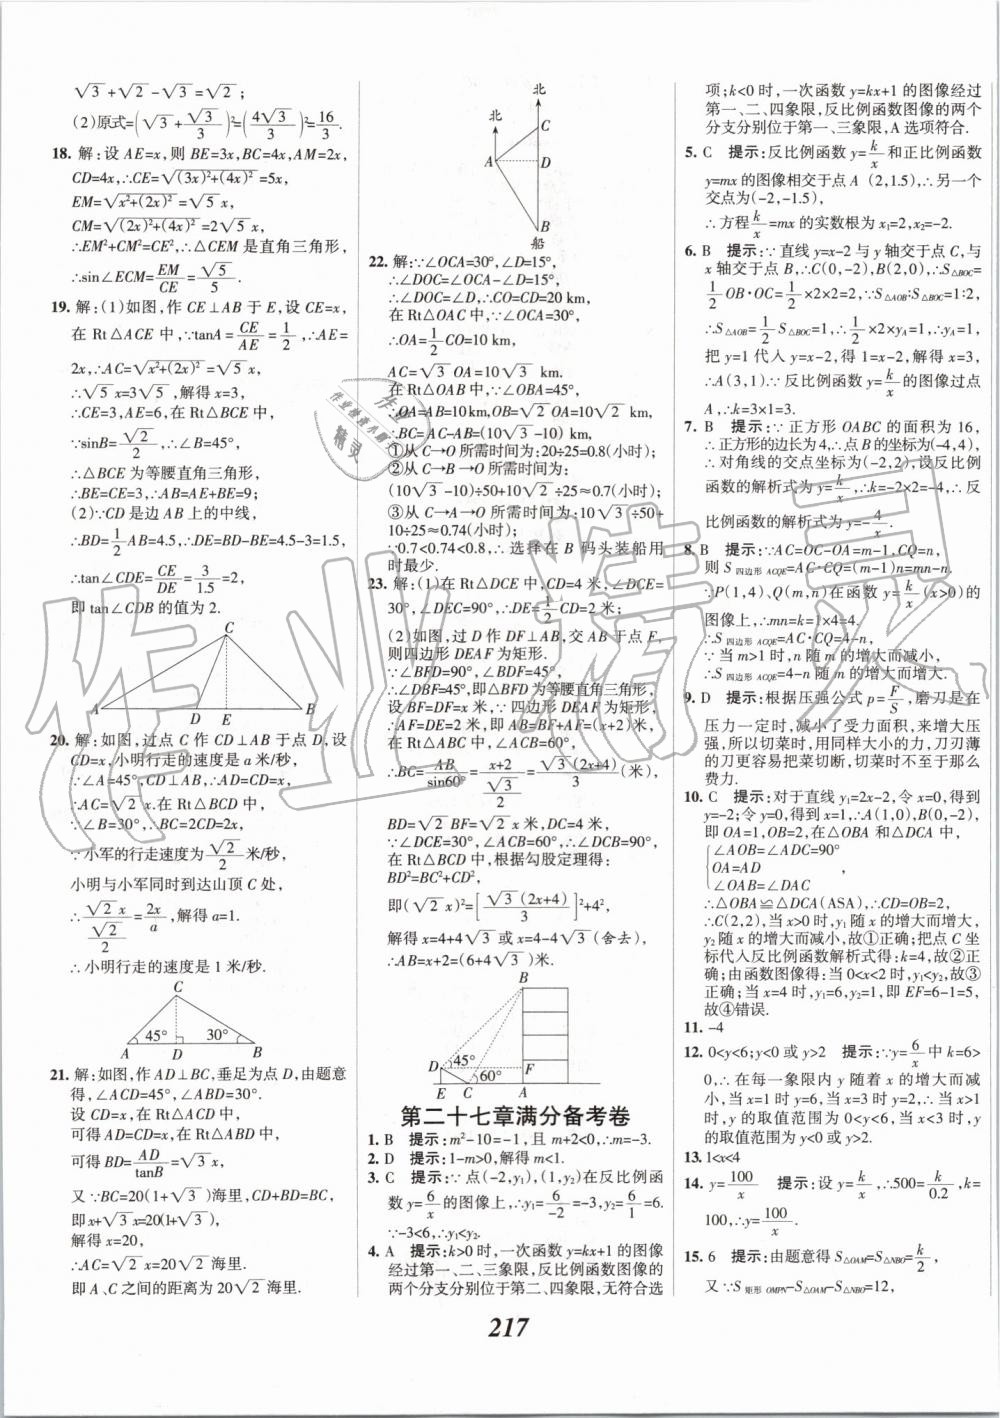 √3+√2-√3=√2;
(2)原式=(√3+√3/3)²=(4√3/3)²=16/3.
18. 解:设 AE=x,则 BE=3x,BC=4x,AM=2x,
CD=4x,∴CE=√((3x)²+(4x)²)=5x,
EM=√(x²+(2x)²)=√5x,
CM=√((2x)²+(4x)²)=2√5x,
∴EM²+CM²=CE²,∴△CEM 是直角三角形,
∴sin∠ECM=EM/CE=√5/5.
19. 解:(1)如图,作 CE⊥AB 于 E,设 CE=x,
在 Rt△ACE 中,∵tanA=CE/AE=1/2,∴AE=
2x,∴AC=√(x²+(2x)²)=√5x,
∴√5x=3√5,解得 x=3,
∴CE=3,AE=6,在 Rt△BCE 中,
∵sinB=√2/2,∴∠B=45°,
∴△BCE 为等腰直角三角形,
∴BE=CE=3,∴AB=AE+BE=9;
(2)∵CD 是边 AB 上的中线,
∴BD=1/2AB=4.5,∴DE=BD-BE=4.5-3=1.5,
∴tan∠CDE=CE/DE=3/1.5=2,
即 tan∠CDB 的值为 2.
C
A D E B
20. 解:如图,过点 C 作 CD⊥AB 于点 D,设
CD=x,小明行走的速度是 a 米/秒,
∵∠A=45°,CD⊥AB,∴AD=CD=x,
∴AC=√2x.在 Rt△BCD 中,
∵∠B=30°,∴BC=2CD=2x,
∵小军的行走速度为√2/2米/秒.
小明与小军同时到达山顶 C 处,
∴√2x/(√2/2)=2x/a,解得 a=1.
∴小明行走的速度是 1 米/秒.
C
45° 30°
A D B
21. 解:如图,作 AD⊥BC,垂足为点 D,由题意
得,∠ACD=45°,∠ABD=30°.
设 CD=x,在 Rt△ACD 中,
可得 AD=CD=x,在 Rt△ABD 中,
可得 BD=AD/tanB=√3x,
又∵BC=20(1+√3)海里,CD+BD=BC,
即x+√3x=20(1+√3)
解得 x=20,
∴AC=√2x=20√2海里.
即 A、C 之间的距离为 20√2海里.
北
北
C
A D
B
船
22. 解:∵∠OCA=30°,∠D=15°,
∴∠DOC=∠OCA-∠D=15°,
∴∠DOC=∠D,∴CO=CD=20 km,
在 Rt△OAC 中,∵∠OCA=30°,
∴OA=1/2CO=10 km,
AC=√3OA=10√3km.
在 Rt△OAB 中,∵∠OBA=45°,
∴OA=AB=10 km,OB=√2OA=10√2km.
∴BC=AC-AB=(10√3-10) km.
①从 C→O 所需时间为:20÷25=0.8(小时);
②从 C→B→O 所需时间为:
(10√3-10)÷50+10√2÷25≈0.7(小时);
③从 C→A→O 所需时间为:10√3÷50+
10÷25≈0.74(小时);
∵0.7<0.74<0.8,∴选择在 B 码头装船用
时最少.
23. 解:(1)在 Rt△DCE 中,CD=4 米,∠DCE=
30°,∠DEC=90°,∴DE=1/2CD=2 米;
(2)如图,过 D 作 DF⊥AB,交 AB 于点 F,
则四边形 DEAF 为矩形.
∵∠BFD=90°,∠BDF=45°,
∴∠DBF=45°,即△BFD 为等腰直角三角形,
设 BF=DF=x 米,∵四边形 DEAF 为矩形,
∴AF=DE=2 米,即 AB=BF+AF=(x+2)米,
在 Rt△ABC 中,∠ACB=60°,
∴BC=AB/sin60°=(x+2)/(√3/2)=√3(2x+4)/3(米),
BD=√2BF=√2x 米,DC=4 米,
∵∠DCE=30°,∠ACB=60°,∴∠DCB=90°,
在 Rt△BCD 中,根据勾股定理得:
BD²=BC²+CD²,
即(√2x)²=[√3(2x+4)/3]²+4²,
解得 x=4+4√3或 x=4-4√3(舍去),
∴AB=x+2=(6+4√3)米.
B
D 45° F
60°
E C A
第二十七章满分备考卷
1. B 提示:m²-10=-1,且 m+2<0,∴m=-3.
2. D 提示:1-m>0,解得 m<1.
3. C 提示:∵点(-2,y₁),(1,y₂)在反比例函
数 y=6/x的图像上,∴y₁=6/-2=-3,y₂=6/1=6.
∵-3<6,∴y₁<y₂.
4. A 提示:k>0 时,一次函数 y=kx+1 的图像
经过第一、二、三象限,反比例函数图像的
两个分支分别位于第二、四象限,无符合选
项;k<0 时,一次函数 y=kx+1 的图像经过
第一、二、四象限,反比例函数图像的两个
分支分别位于第一、三象限,A 选项符合.
5. C 提示:反比例函数 y=k/x和正比例函数
y=mx 的图像相交于点 A(2,1.5),∴另一个
交点为(-2,-1.5),
∴方程k/x=mx 的实数根为 x₁=2,x₂=-2.
6. B 提示:∵直线 y=x-2 与 y 轴交于点 C,与
x 轴交于点 B,∴C(0,-2),B(2,0),∴S△BOC=
1/2OB·OC=1/2×2×2=2,∵S△AOB∶S△BOC=1∶2,
∴S△AOB=1/2S△BOC=1,∴1/2×2×yA=1,∴yA=1,
把 y=1 代入 y=x-2,得 1=x-2,解得 x=3,
∴A(3,1).∵反比例函数 y=k/x的图像过点
A,∴k=3×1=3.
7. B 提示:∵正方形 OABC 的面积为 16,
∴正方形的边长为 4,∴点 B 的坐标为(-4,4),
∴对角线的交点坐标为(-2,2),设反比例
函数的解析式为 y=k/x,∴k=-2×2=-4,∴反
比例函数的解析式为 y=-4/x.
8. B 提示:∵AC=OC-OA=m-1,CQ=n,
则 S四边形ACQE=AC·CQ=(m-1)n=mn-n.
∵P(1,4)、Q(m,n)在函数 y=k/x(x>0)的
图像上,∴mn=k=1×4=4.
∴S四边形ACQE=AC·CQ=4-n,
∵当 m>1 时,n 随 m 的增大而减小,
∴S四边形ACQE=4-n 随 m 的增大而增大.
9. D 提示:根据压强公式 p=F/S,磨刀是在
压力一定时,减小了受力面积,来增大压
强,所以切菜时,用同样大小的力,刀刃薄
的刀更容易把菜切断,切菜时不至于那么
费力.
10. C 提示:对于直线 y₁=2x-2,令 x=0,得到
y=-2;令 y=0,得到 x=1,∴A(1,0),B(0,-2),
即 OA=1,OB=2,在△OBA 和△DCA 中,
{∠AOB=∠ADC=90°
OA=AD
∠OAB=∠DAC
∴△OBA≌△DCA(ASA),∴CD=OB=2,
∴C(2,2),当 x>0 时,y₁ 随 x 的增大而增大,
y₂ 随 x 的增大而减小,故①正确;把点 C 坐
标代入反比例函数解析式得:k=4,故②正
确;由函数图像得:当 0<x<2 时,y₁<y₂,故③
正确;当 x=4 时,y₁=6,y₂=1,即 EF=6-1=5,
故④错误.
11. -4
12. 0<y<6;y<0 或 y>2 提示:∵y=6/x中 k=6>
0,∴在每一象限内 y 随 x 的增大而减
小,当 x=1 时,y=6,当 x=3 时,y=2,∴当
1<x<3 时,y 的取值范围为 0<y<6,当 x<3 时,
y 的取值范围为 y<0 或 y>2.
13. 1<x<4
14. y=100/x 提示:设 y=k/x,∴500=k/0.2,k=
100,∴y=100/x.
15. 6 提示:由题意得 S△OAM=S△NBO=k/2,
又∵S矩形OMPN-S△OAM-S△NBO=12,
217
作业精灵
作业
作业检查小助手
精灵